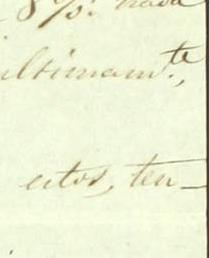 8%. nada
ultimam.te,
eitos, ten-